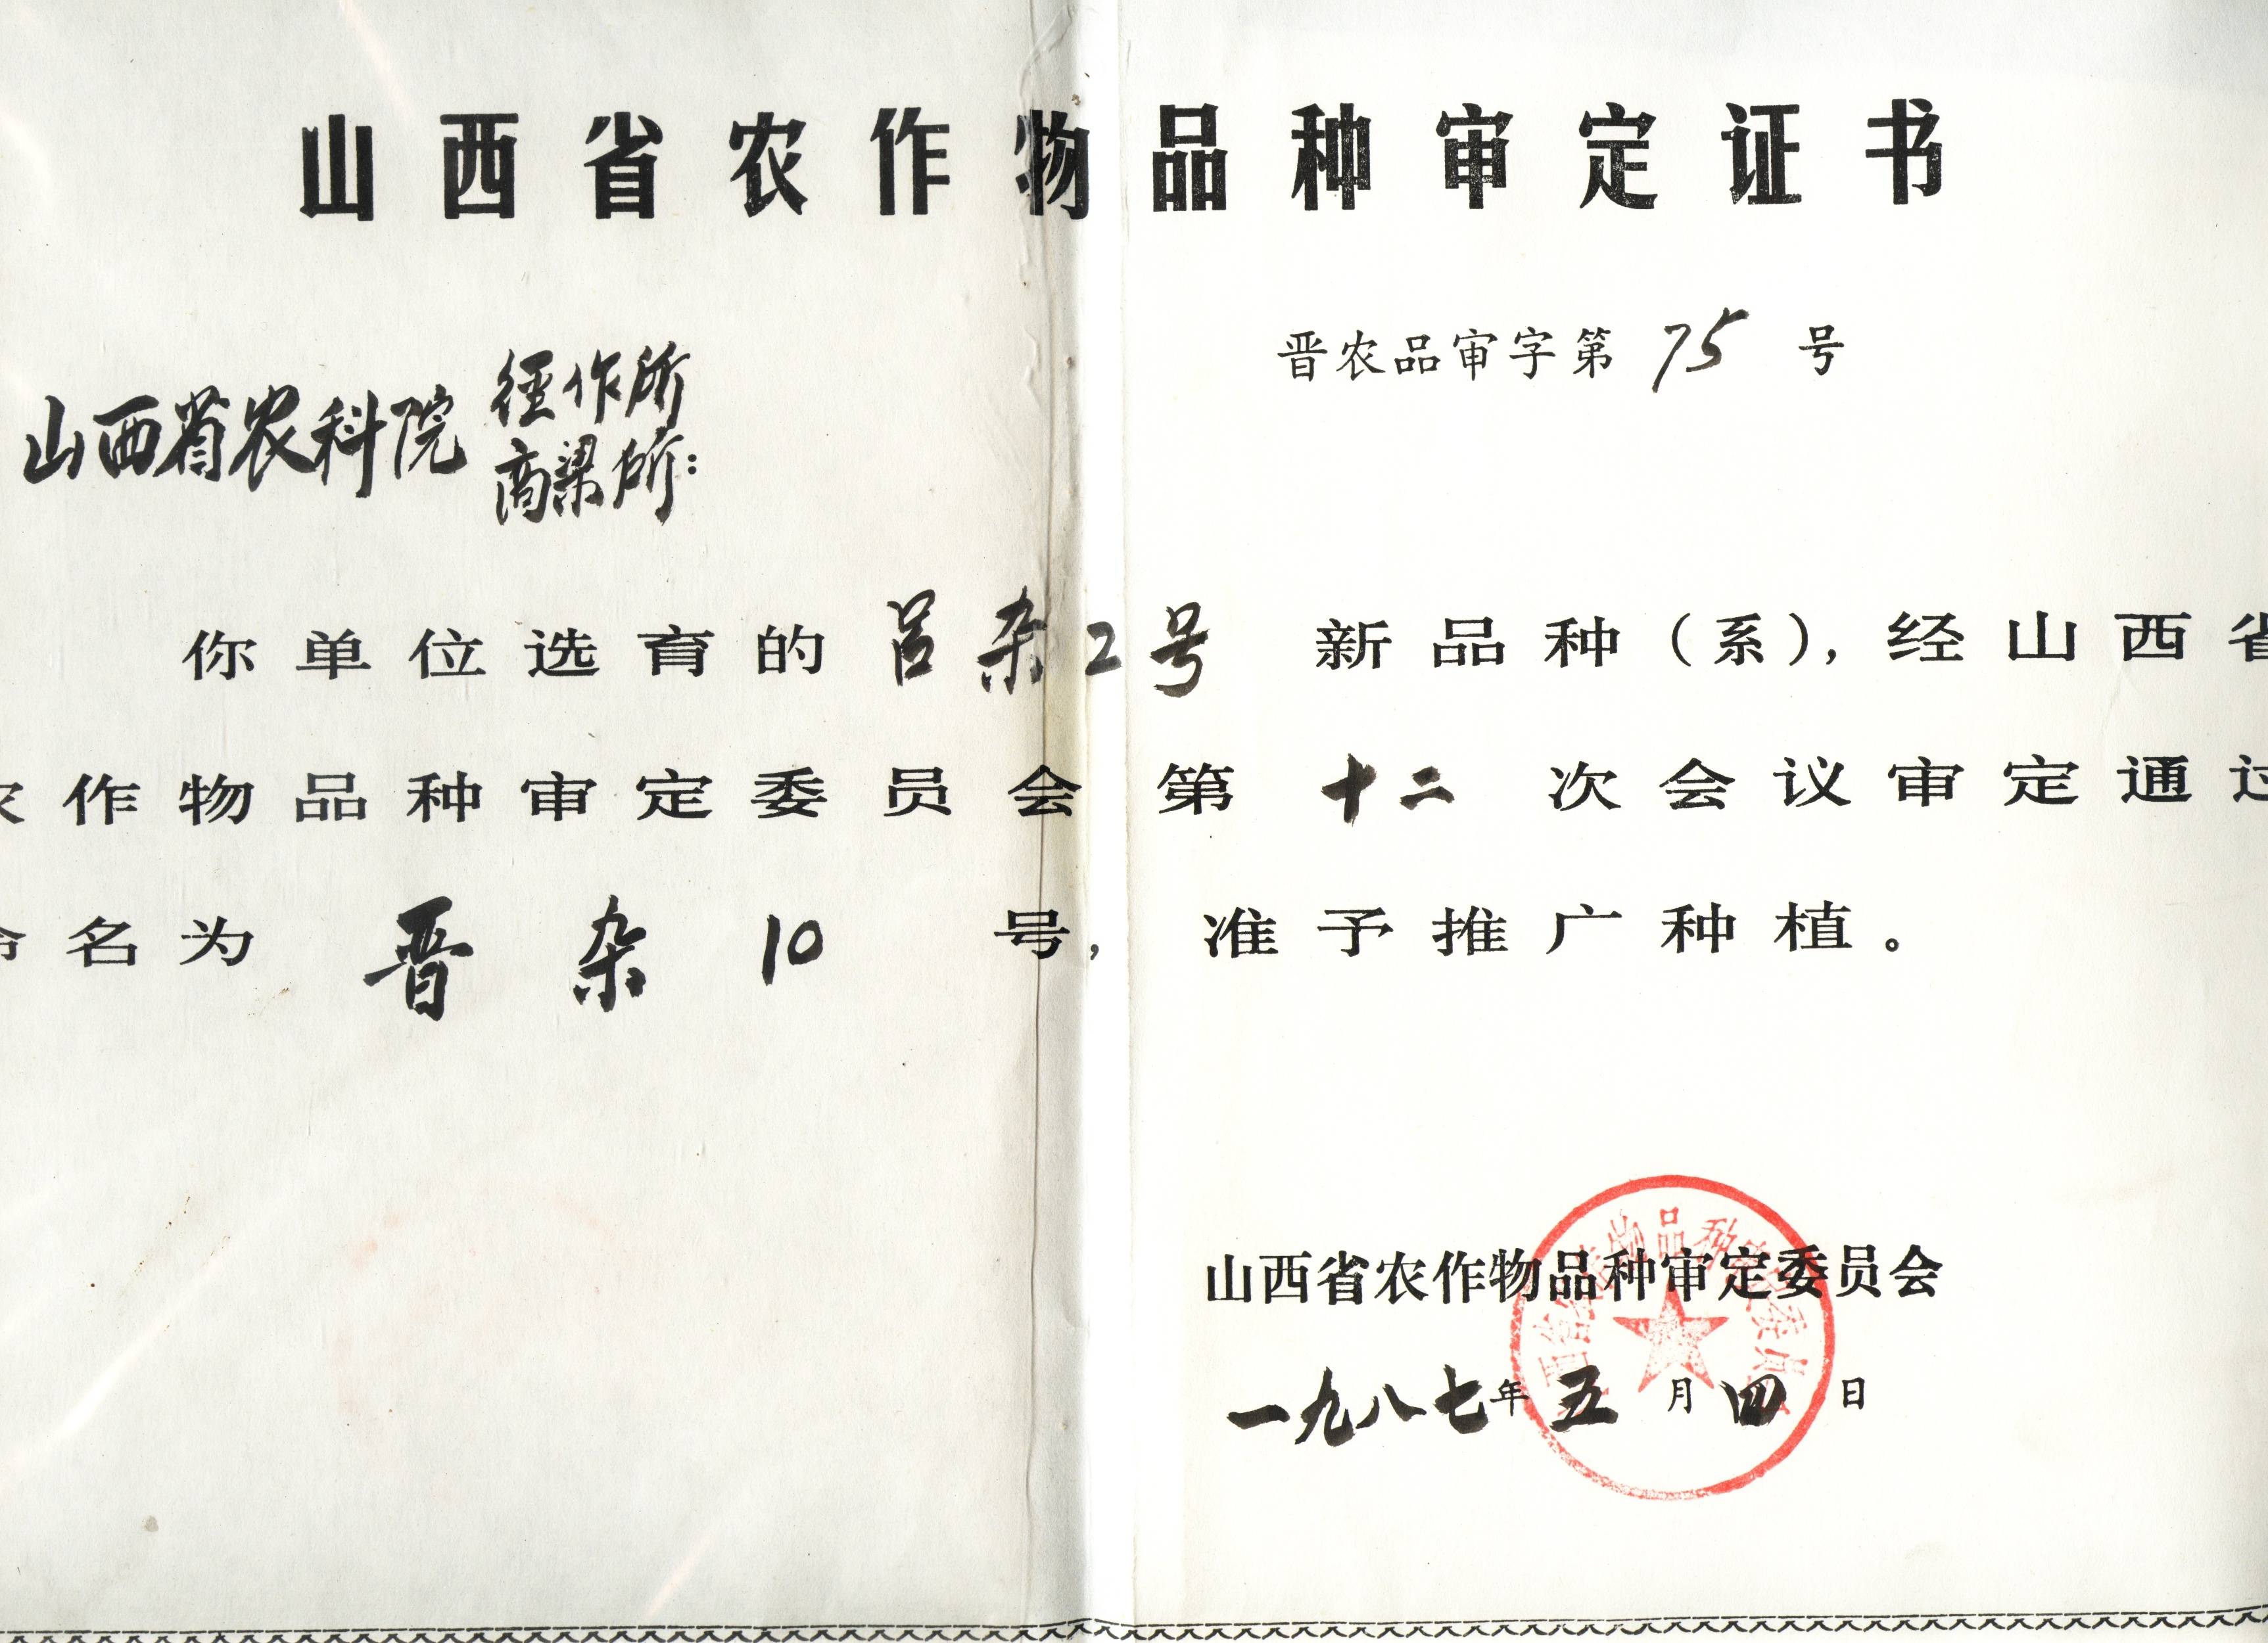 山西省农作物品种审定证书
晋农品审字第 75 号
山西省农科院 经作所
高粱所：
你单位选育的 吕杂2号 新品种（系），经山西省
农作物品种审定委员会第 十二 次会议审定通过
命名为 晋杂10 号，准予推广种植。
山西省农作物品种审定委员会
一九八七年五月四日